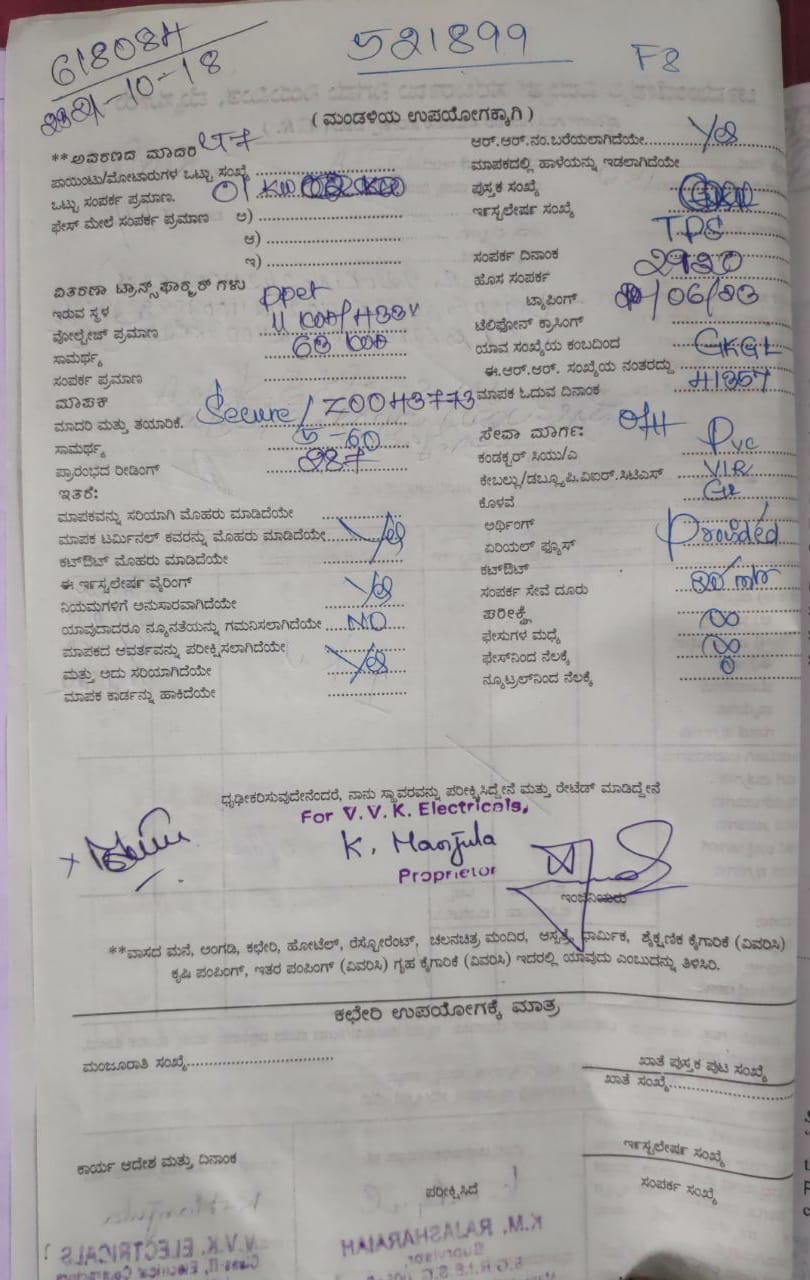 618084
521899
F8
-10-18
(ಮಂಡಳಿಯ ಉಪಯೋಗಕ್ಕಾಗಿ)
**ಅವರಣದ ಮಾದರಿ LT7
ಪಾಯಿಂಟು/ಮೋಟಾರುಗಳ ಒಟ್ಟು ಸಂಖ್ಯೆ
ಒಟ್ಟು ಸಂಪರ್ಕ ಪ್ರಮಾಣ. 01 KW
ಫೇಸ್ ಮೇಲೆ ಸಂಪರ್ಕ ಪ್ರಮಾಣ ಅ)
ಆ)
ಇ)
ವಿತರಣಾ ಟ್ರಾನ್ಸ್‌ಫಾರ್ಮರ್ ಗಳು
ಇರುವ ಸ್ಥಳ
ವೋಲ್ಟೇಜ್ ಪ್ರಮಾಣ
ಸಾಮರ್ಥ್ಯ 63
ಸಂಪರ್ಕ ಪ್ರಮಾಣ
ಮಾಪಕ
ಮಾದರಿ ಮತ್ತು ತಯಾರಿಕೆ. Secure/Z0043773
ಸಾಮರ್ಥ್ಯ 5-60
ಪ್ರಾರಂಭದ ರೀಡಿಂಗ್
ಇತರೆ:
ಮಾಪಕವನ್ನು ಸರಿಯಾಗಿ ಮೊಹರು ಮಾಡಿದೆಯೇ
ಮಾಪಕ ಟರ್ಮಿನಲ್ ಕವರನ್ನು ಮೊಹರು ಮಾಡಿದೆಯೇ Yes
ಕಟ್‌ಔಟ್ ಮೊಹರು ಮಾಡಿದೆಯೇ
ಈ ಇನ್‌ಸ್ಟಲೇಷನ್ ವೈರಿಂಗ್
ನಿಯಮಗಳಿಗೆ ಅನುಸಾರವಾಗಿದೆಯೇ Yes
ಯಾವುದಾದರೂ ನ್ಯೂನತೆಯನ್ನು ಗಮನಿಸಲಾಗಿದೆಯೇ NO
ಮಾಪಕದ ಆವರ್ತವನ್ನು ಪರೀಕ್ಷಿಸಲಾಗಿದೆಯೇ
ಮತ್ತು ಅದು ಸರಿಯಾಗಿದೆಯೇ Yes
ಮಾಪಕ ಕಾರ್ಡನ್ನು ಹಾಕಿದೆಯೇ
ಆರ್.ಆರ್.ನಂ.ಬರೆಯಲಾಗಿದೆಯೇ Yes
ಮಾಪಕದಲ್ಲಿ ಹಾಳೆಯನ್ನು ಇಡಲಾಗಿದೆಯೇ
ಪುಸ್ತಕ ಸಂಖ್ಯೆ
ಇನ್‌ಸ್ಟಲೇಷನ್ ಸಂಖ್ಯೆ
ಸಂಪರ್ಕ ದಿನಾಂಕ
ಹೊಸ ಸಂಪರ್ಕ
ಟ್ಯಾಪಿಂಗ್ /06/
ಟೆಲಿಫೋನ್ ಕ್ರಾಸಿಂಗ್
ಯಾವ ಸಂಖ್ಯೆಯ ಕಂಬದಿಂದ
ಈ.ಆರ್.ಆರ್. ಸಂಖ್ಯೆಯ ನಂತರದ್ದು GKGL
ಮಾಪಕ ಓದುವ ದಿನಾಂಕ 41357
ಸೇವಾ ಮಾರ್ಗ: O/H
ಕಂಡಕ್ಟರ್ ಸಿಯು/ಎ Pvc
ಕೇಬಲ್ಲು/ಡಬ್ಲ್ಯೂ.ಪಿ.ವಿಐಆರ್.ಸಿಟಿಎಸ್ VIR
ಕೊಳವೆ GI
ಅರ್ಥಿಂಗ್
ಏರಿಯಲ್ ಫ್ಯೂಸ್ Provided
ಕಟ್‌ಔಟ್
ಸಂಪರ್ಕ ಸೇವೆ ದೂರು
ಪರೀಕ್ಷೆ
ಫೇಸುಗಳ ಮಧ್ಯೆ ∞
ಫೇಸ್‌ನಿಂದ ನೆಲಕ್ಕೆ ∞
ನ್ಯೂಟ್ರಲ್‌ನಿಂದ ನೆಲಕ್ಕೆ 0
ಧೃಢೀಕರಿಸುವುದೇನೆಂದರೆ, ನಾನು ಸ್ಥಾವರವನ್ನು ಪರೀಕ್ಷಿಸಿದ್ದೇನೆ ಮತ್ತು ರೇಟೆಡ್ ಮಾಡಿದ್ದೇನೆ
For V.V.K. Electricals,
K. Manjula
Proprietor
ಇಂಜಿನಿಯರು
**ವಾಸದ ಮನೆ, ಅಂಗಡಿ, ಕಛೇರಿ, ಹೋಟೆಲ್, ರೆಸ್ಟೋರೆಂಟ್, ಚಲನಚಿತ್ರ ಮಂದಿರ, ಆಸ್ಪತ್ರೆ, ಧಾರ್ಮಿಕ, ಶೈಕ್ಷಣಿಕ ಕೈಗಾರಿಕೆ (ವಿವರಿಸಿ)
ಕೃಷಿ ಪಂಪಿಂಗ್, ಇತರ ಪಂಪಿಂಗ್ (ವಿವರಿಸಿ) ಗೃಹ ಕೈಗಾರಿಕೆ (ವಿವರಿಸಿ) ಇದರಲ್ಲಿ ಯಾವುದು ಎಂಬುದನ್ನು ತಿಳಿಸಿರಿ.
ಕಛೇರಿ ಉಪಯೋಗಕ್ಕೆ ಮಾತ್ರ
ಮಂಜೂರಾತಿ ಸಂಖ್ಯೆ
ಖಾತೆ ಪುಸ್ತಕ ಪುಟ ಸಂಖ್ಯೆ
ಖಾತೆ ಸಂಖ್ಯೆ
ಕಾರ್ಯ ಆದೇಶ ಮತ್ತು ದಿನಾಂಕ
ಪರೀಕ್ಷಿಸಿದೆ
ಇನ್‌ಸ್ಟಲೇಷನ್ ಸಂಖ್ಯೆ
ಸಂಪರ್ಕ ಸಂಖ್ಯೆ
K.M. RAJASHARAIAH
Supervisor
V.V.K. ELECTRICALS